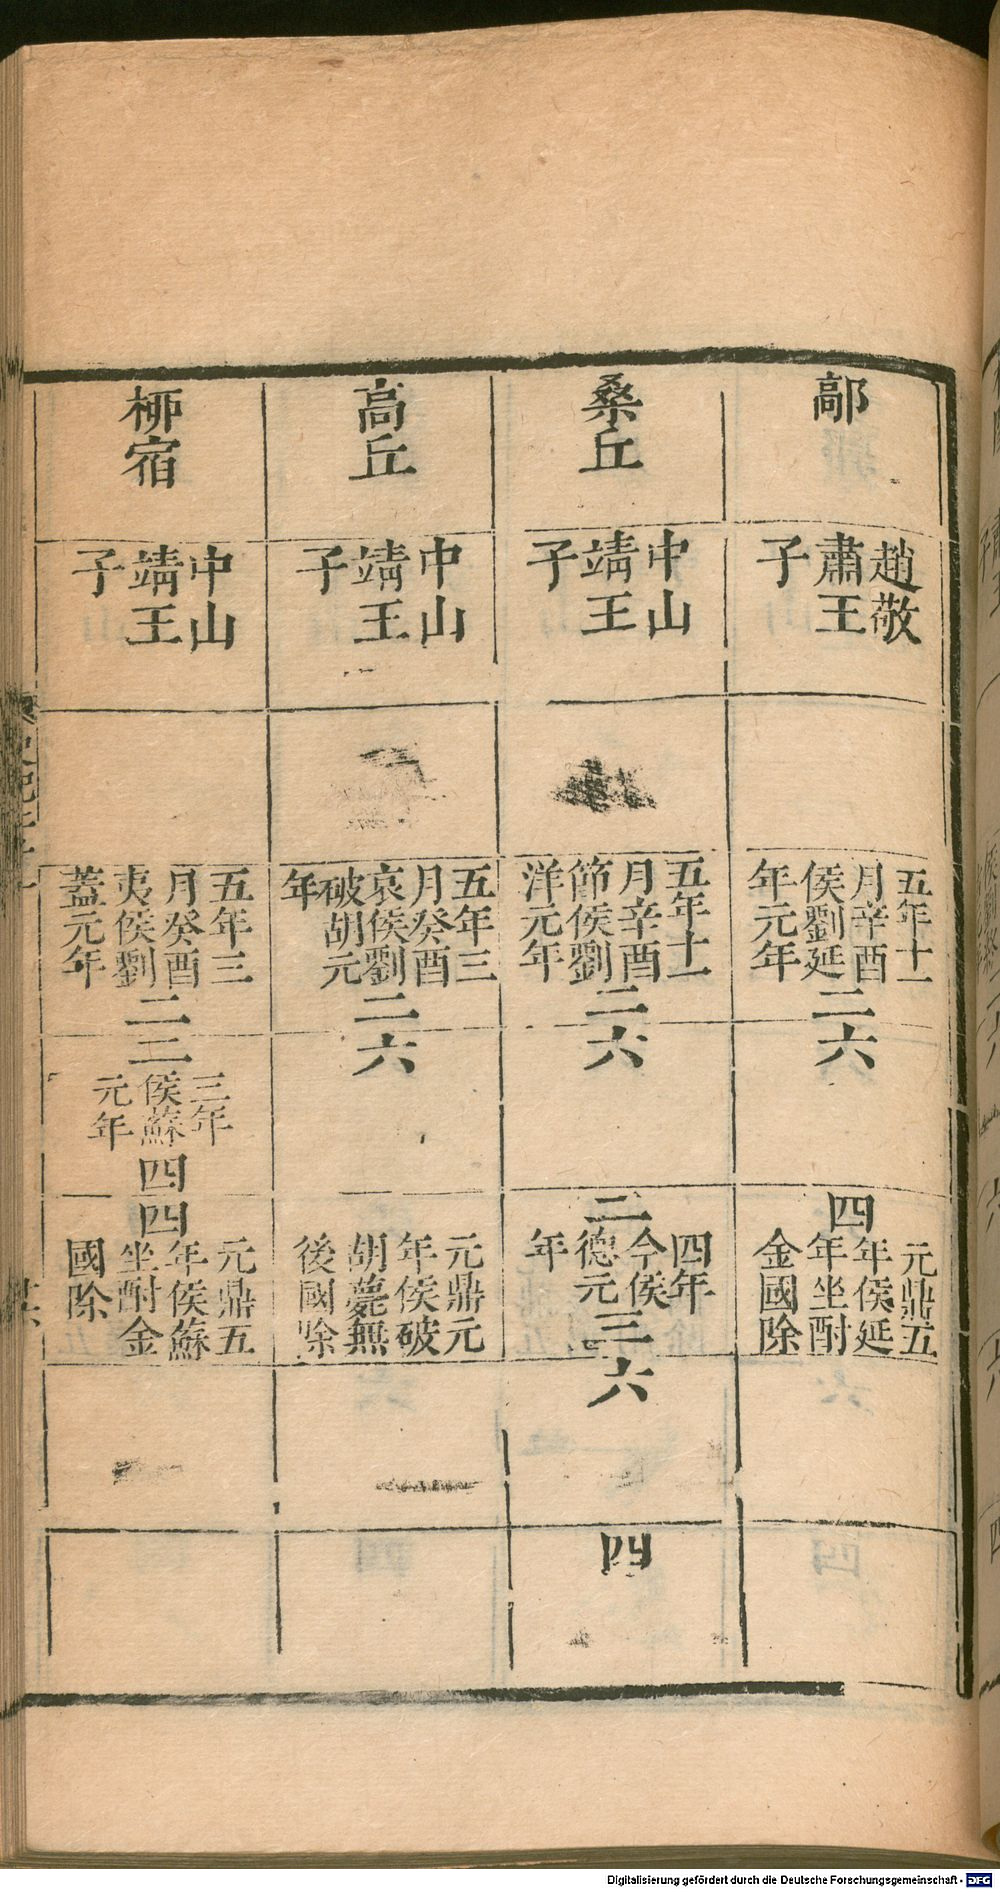 鄗
趙敬
肅王
子
五年十一
月辛酉
侯劉延
年元年
二
六
四
元鼎五
年侯延
年坐酎
金國除
桑丘
中山
靖王
子
五年十一
月辛酉
節侯劉
洋元年
二
六
二
四年
今侯
德元
年
三
六
四
高丘
中山
靖王
子
五年三
月癸酉
哀侯劉
破胡元
年
二
六
元鼎元
年侯破
胡薨無
後國除
桺宿
中山
靖王
子
五年三
月癸酉
夷侯劉
蓋元年
二
二
三年
侯蘇
元年
四
四
元鼎五
年侯蘇
坐酎金
國除
Digitalisierung gefördert durch die Deutsche Forschungsgemeinschaft - DFG